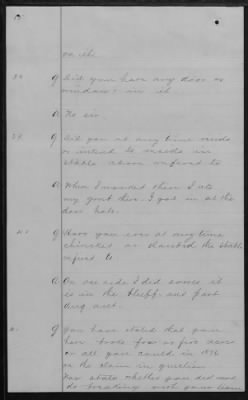 on it
Q Did you have any door or
windows in it
A No sir
Q Did you at any time reside
or intend to reside in
stable above referred to
A When I worked there I ate
my grub there. I got in at the
door hole.
Q Have you ever at any time
chinked or daubed the stable
referred to
A On one side I did some it
is in the bluff and part
dug out.
Q You have stated that you
broke four or five acres
or all you could in 1896
on the claim in question
state whether you did not
do breaking with your team